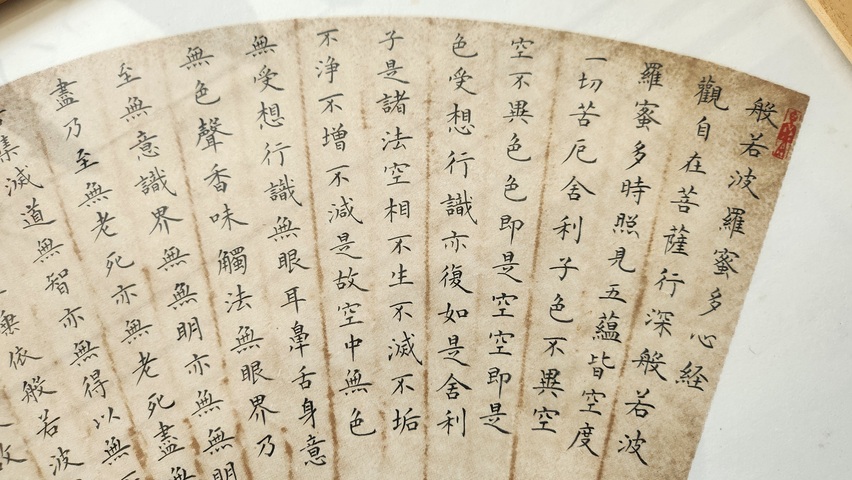 般若波羅蜜多心経
觀自在菩薩行深般若波
羅蜜多時照見五蘊皆空度
一切苦厄舍利子色不異空
空不異色色即是空空即是
色受想行識亦復如是舍利
子是諸法空相不生不滅不垢
不浄不增不減是故空中無色
無受想行識無眼耳鼻舌身意
無色聲香味觸法無眼界乃
至無意識界無無明亦無無明
盡乃至無老死亦無老死盡無
集滅道無智亦無得以無
依般若波
故